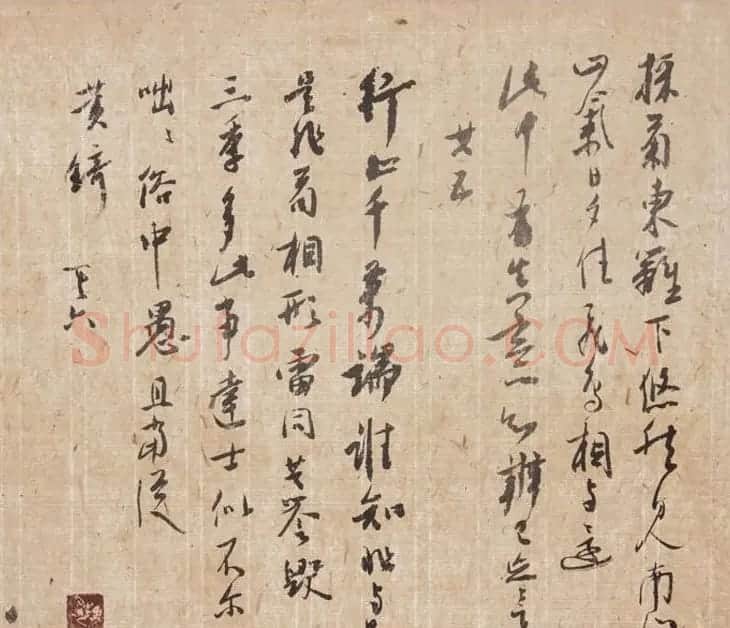 採菊東籬下悠然見南
山氣日夕佳飛鳥相與還
此中有真意欲辨已忘言
其五
行止千萬端誰知非與
是非苟相形雷同共譽毀
三季多此事達士似不尔
咄〻俗中愚且當從
黃綺 其六
Shufaziliao.COM